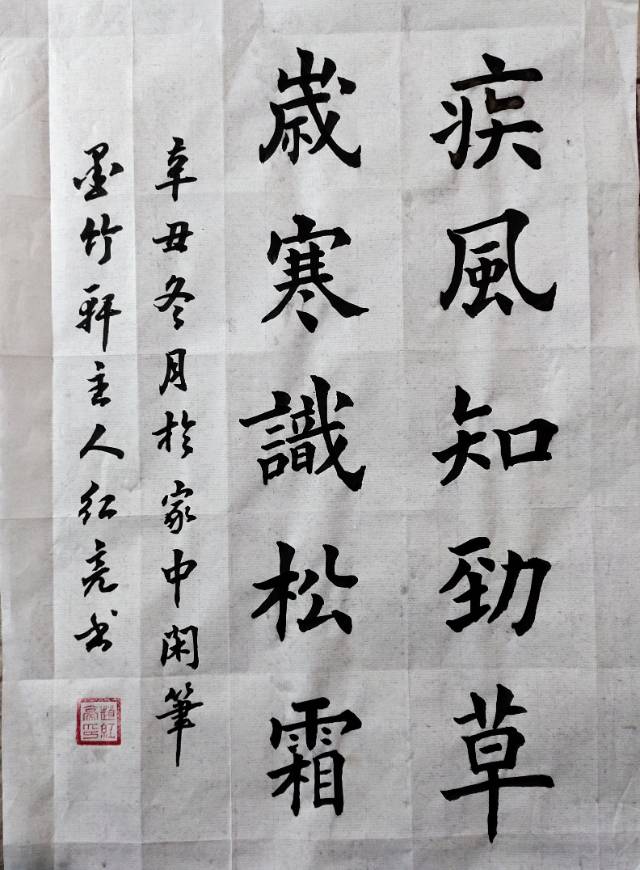 疾風知勁草
歲寒識松霜
辛丑冬月於家中閑筆
墨竹軒主人紅亮书